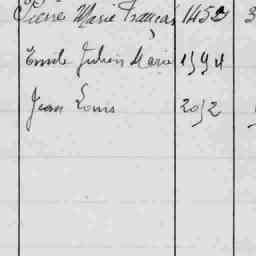 Pierre Marie François 1452 3
Emile Julien Marie 1994
Jean Louis 2092